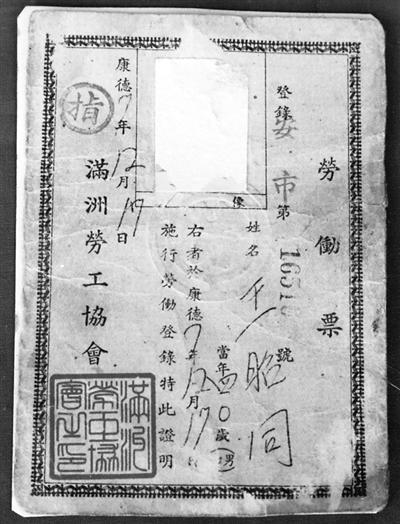 勞働票
登錄 安市第 號
姓名 昭同
當年 歲(男)
右者於康德7年12月17日
施行勞働登錄特此證明
像
康德7年12月17日
指
滿洲勞工協會
滿洲勞工協會之印